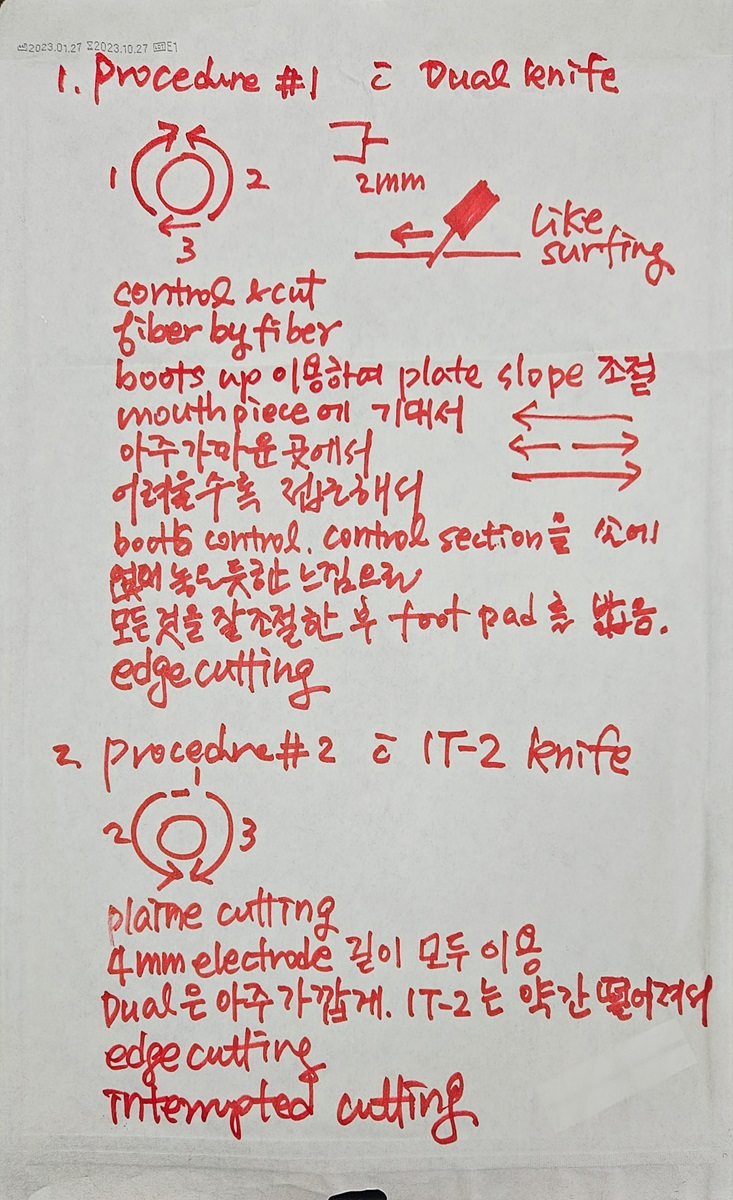 2023.01.27 2023.10.27 E1
1. Procedure #1 c̄ Dual knife
1 2 3
2mm
like
surfing
control & cut
fiber by fiber
boots up 이용하여 plate slope 조절
mouthpiece에 기대서
아주 가까운 곳에서
어려울수록 접근해서
boots control. control section을 손에
놓은듯한 느낌으로
모든 것을 잘 조절한 후 foot pad를 밟음.
edge cutting
2. procedure #2 c̄ IT-2 knife
1
2 3
plane cutting
4mm electrode 길이 모두 이용
Dual은 아주 가깝게. IT-2는 약간 떨어져서
edge cutting
interrupted cutting